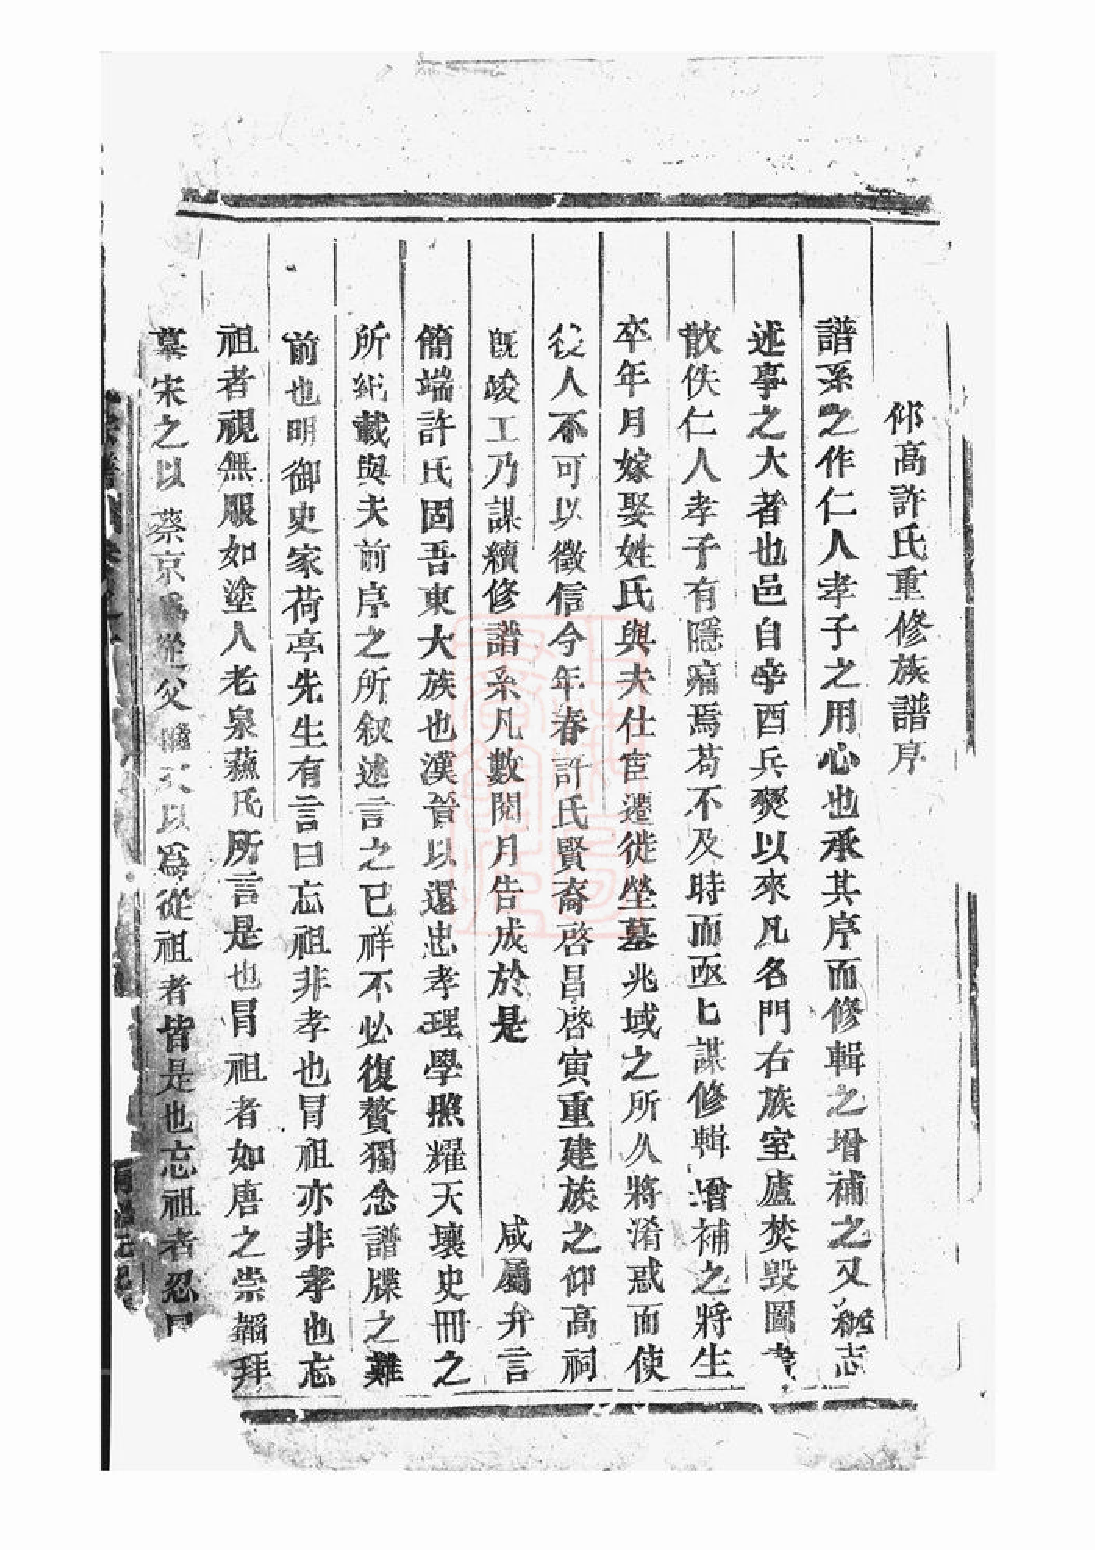 仰高許氏重修族譜序
譜系之作仁人孝子之用心也承其序而修輯之增補之又繼志
述事之大者也邑自辛酉兵燹以來凡名門右族室廬焚毀圖書
散佚仁人孝子有隱痛焉苟不及時而亟亟謀修輯增補之將生
卒年月嫁娶姓氏與夫仕宦遷徙塋墓兆域之所久將淆惑而使
後人不可以徵信今年春許氏賢裔啓昌啓寅重建族之仰高祠
旣峻工乃謀續修譜系凡數閱月告成於是　咸屬弁言
簡端許氏固吾東大族也漢晉以還忠孝理學照耀天壤史冊之
所紀載與夫前序之所叙述言之已祥不必復贅獨念譜牒之難
前也明御史家荷亭先生有言曰忘祖非孝也冒祖亦非孝也忘
祖者視無服如塗人老泉蘇氏所言是也冒祖者如唐之崇韜拜
墓宋之以蔡京爲從父 以爲從祖者皆是也忘祖者忍冒